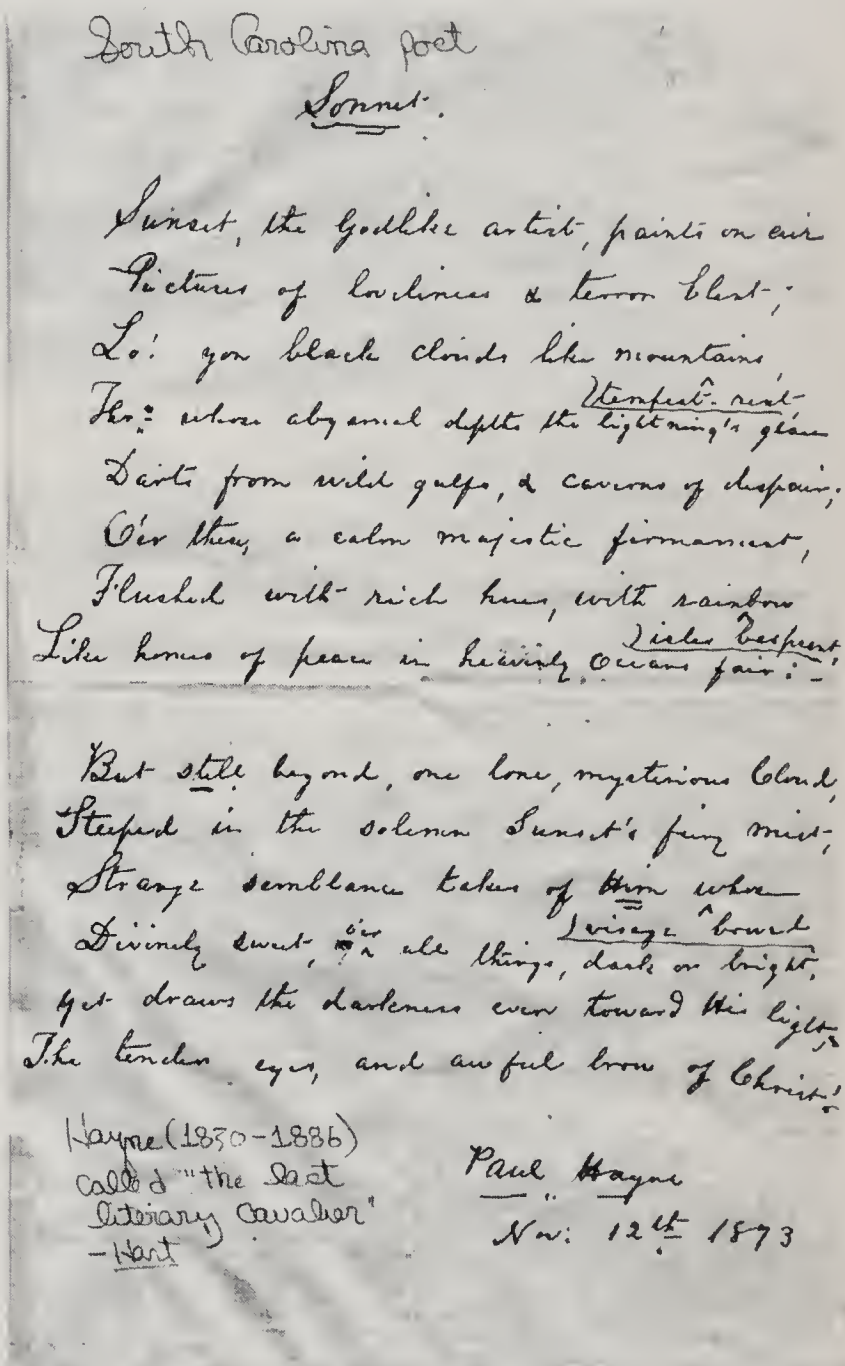 South Carolina poet
Sonnet.
Sunset, the Godlike artist, paints on air
Pictures of loveliness & terror blent;
Lo! yon black clouds like mountains,
^tempest-rent
Thro: whose abysmal depths the lightning's glare
Darts from wild gulfs, & caverns of despair;
O'er these, a calm majestic firmament,
Flushed with rich hues, with rainbow
^isles besprent,
Like homes of peace in heavenly Oceans fair:-
But still beyond, one lone, mysterious Cloud,
Steeped in the solemn Sunset's fiery mist,
Strange semblance takes of Him whose
^visage bowed
Divinely sweet, o'er all things, dark or bright,
yet draws the darkness ever toward His light,
The tender eyes, and awful brow of Christ!
Hayne (1830-1886)
called "the last
literary Cavalier"
-Hart
Paul Hayne
Nov: 12th 1873